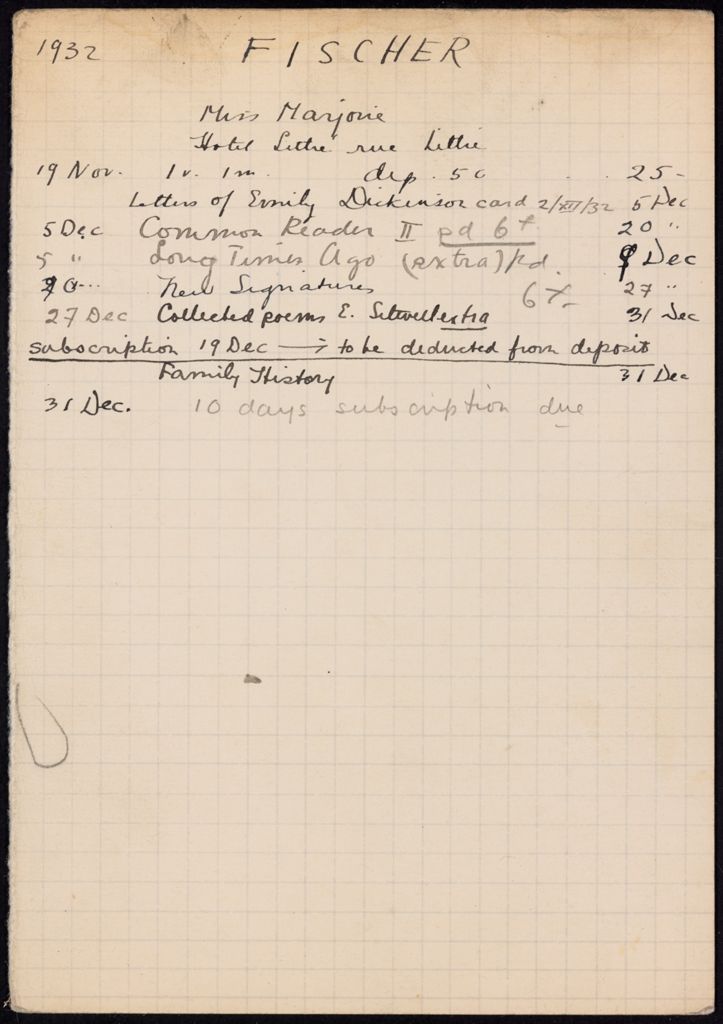 1932 FISCHER
Miss Marjorie
Hotel Littré rue Littré
19 Nov. 1 v. 1 m. dep. 50 25-
Letters of Emily Dickinson card 2/XII/32 5 Dec
5 Dec Common Reader II pd 6f 20 "
5 " Long Times Ago (extra) pd. 9 Dec
20 " New Signatures 6f- 27 "
27 Dec Collected poems E. Sitwell extra 31 Dec
subscription 19 Dec → to be deducted from deposit
Family History 31 Dec
31 Dec. 10 days subscription due